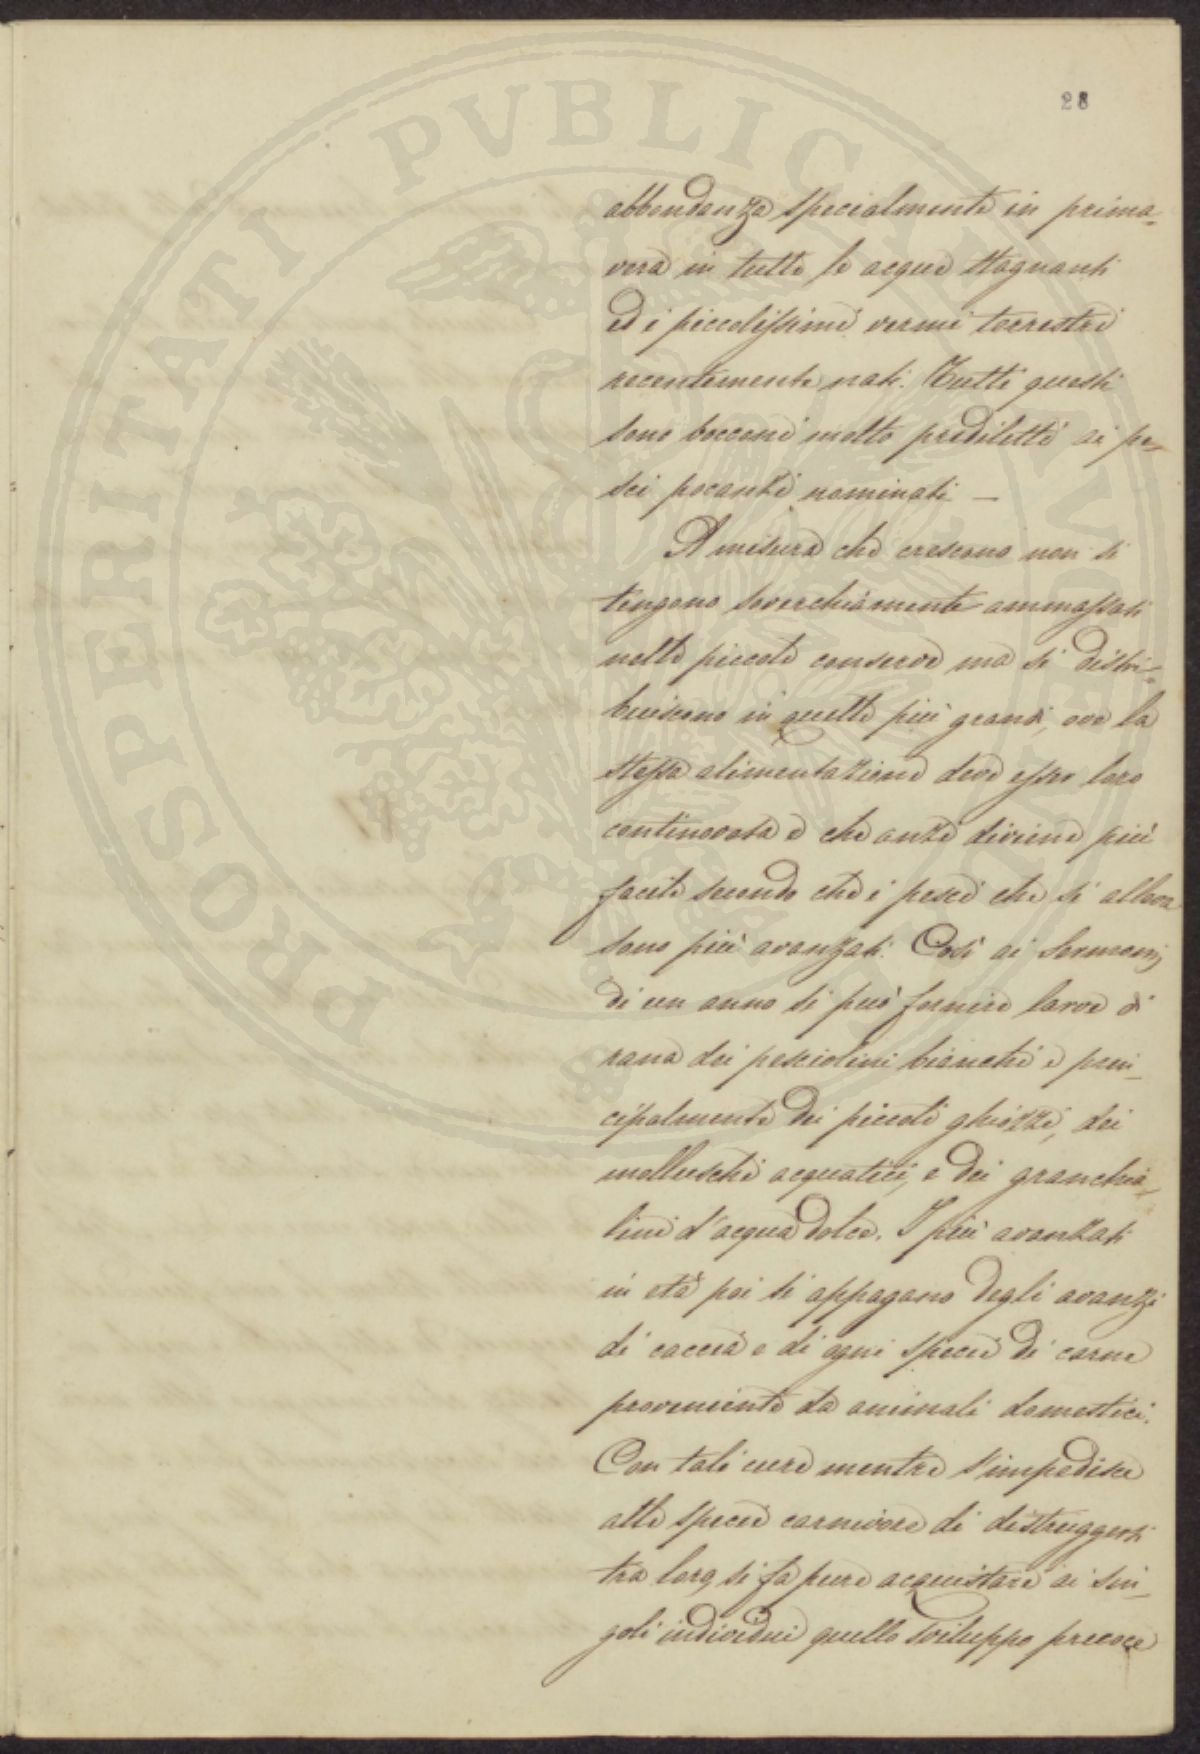 28
abbondanza specialmente in prima=
vera in tutte le acque stagnanti
ed i piccolissimi vermi terrestri
recentemente nati. Tutti questi
sono bocconi molto prediletti ai pe=
sci pocanzi nominati —
A misura che crescono non si
tengono soverchiamente ammassati
nelle piccole conserve ma si distri=
buiscono in quelle più grandi, ove la
stessa alimentazione deve esser loro
continovata e che anzi diviene più
facile secondo che i pesci che si alleva
sono più avanzati. Così ai sermoni
di un anno si può fornire larve di
rana dei pesciolini bianchi e prin=
cipalmente dei piccoli ghiozzi, dei
molluschi acquatici, e dei granchio=
lini d'acqua dolce. I più avanzati
in età poi si appagano degli avanzi
di caccia e di ogni specie di carne
proveniente da animali domestici.
Con tali cure mentre s'impedisce
alle specie carnivore di distruggersi
tra loro, si fa pure acquistare ai sin=
goli individui quello sviluppo precoce
PROSPERITATI PVBLICAE